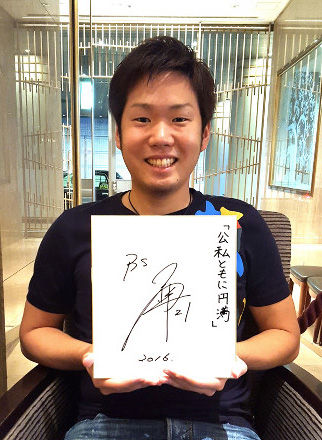 「公私ともに円満」
Bs
21
2016.